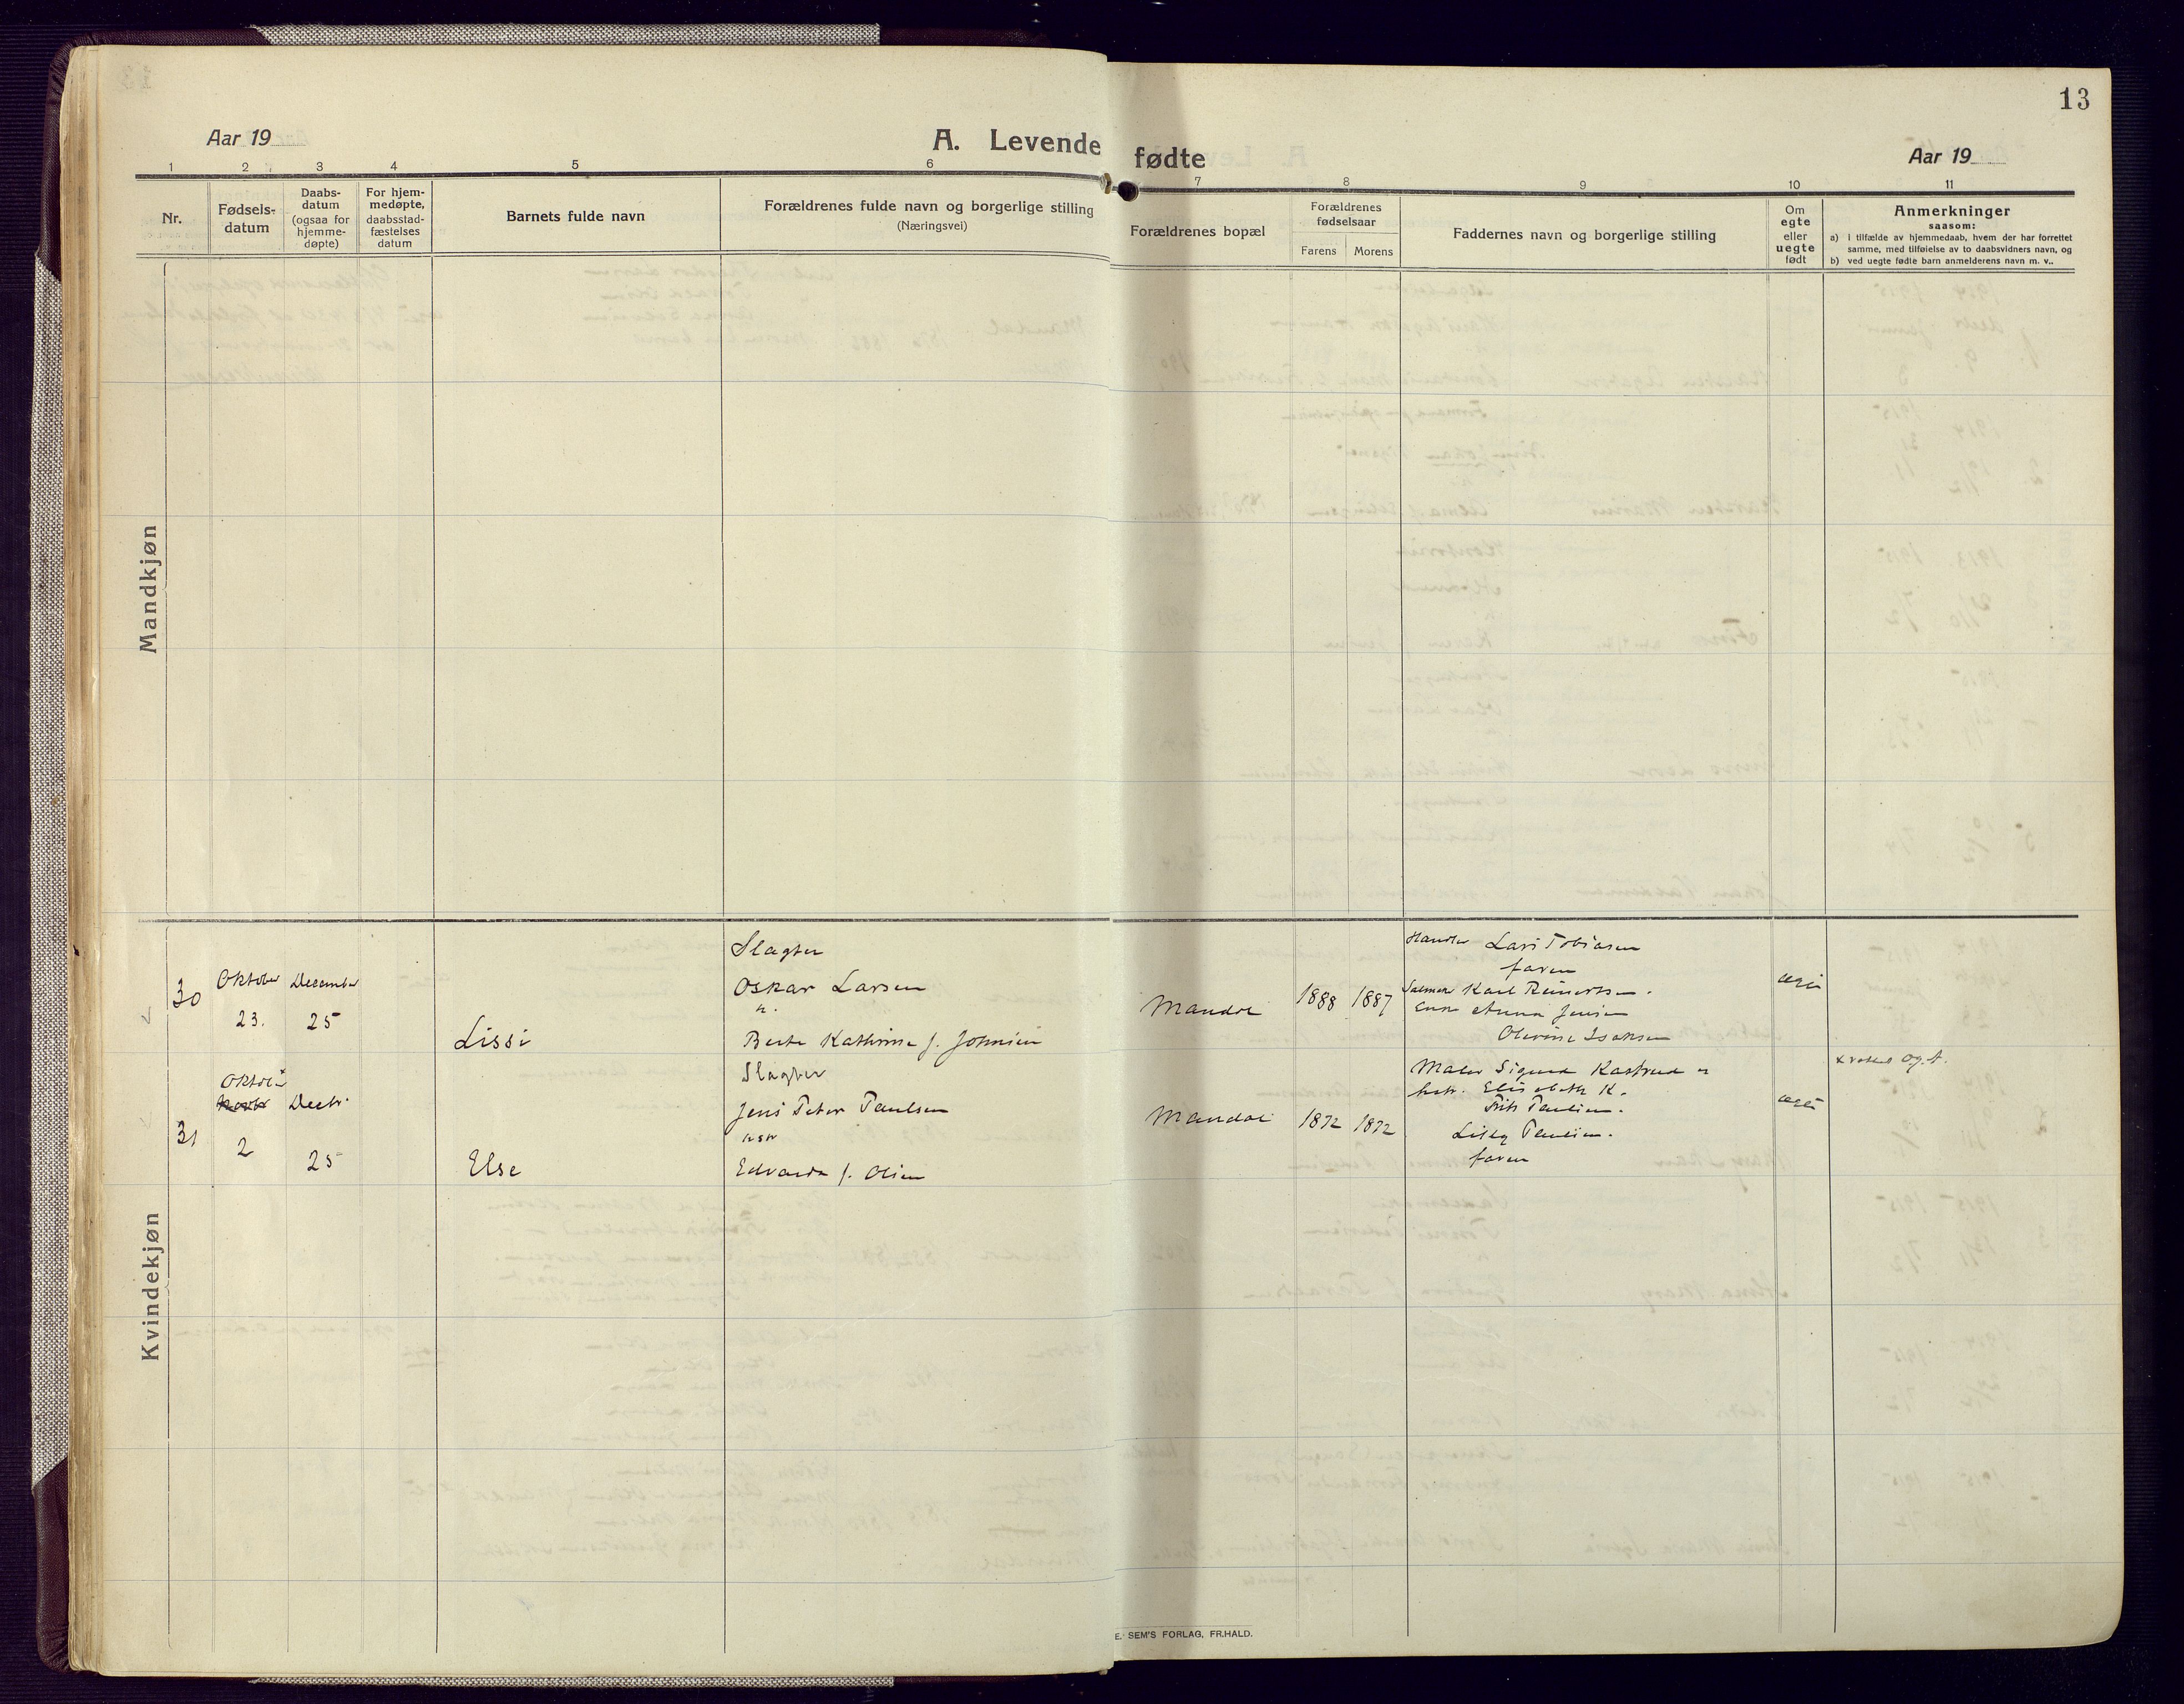 13
Aar 19
A. Levende fødte
Aar 19
1 2 3 4 5 6 7 8 9 10 11
Nr.
Fødsels-
datum
Daabs-
datum
(ogsaa for
hjemme-
døpte)
For hjem-
medøpte,
daabsstad-
fæstelses
datum
Barnets fulde navn
Forældrenes fulde navn og borgerlige stilling
(Næringsvei)
Forældrenes bopæl
Forældrenes
fødselsaar
Farens Morens
Faddernes navn og borgerlige stilling
Om
egte
eller
uegte
født
Anmerkninger
saasom:
a) I tilfælde av hjemmedaab, hvem der har forrettet
samme, med tilføielse av to daabsvidners navn, og
b) ved uegte fødte barn anmelderens navn m. v..
Mandkjøn
Kvindekjøn
30
Oktober
23.
December
25
Lissi
Slagter
Oskar Larsen
h.
Berte Kathrine f. Johnsen
Mandal
1888 1887
Lars Tobiasen
faren
Karl Reinertsen.
Anna Jensen
Olevine Isaksen
ægte
31
Oktober
2
Decbr.
25
Else
Slagter
Jens Peter Paulsen
Edvarda f. Olsen
Mandal
1872 1872
Maler Sigurd Kastrud
hstr. Elisabeth K.
Frits Paulsen.
Lilly Paulsen.
faren
ægte
E. SEM'S FORLAG, FR.HALD.